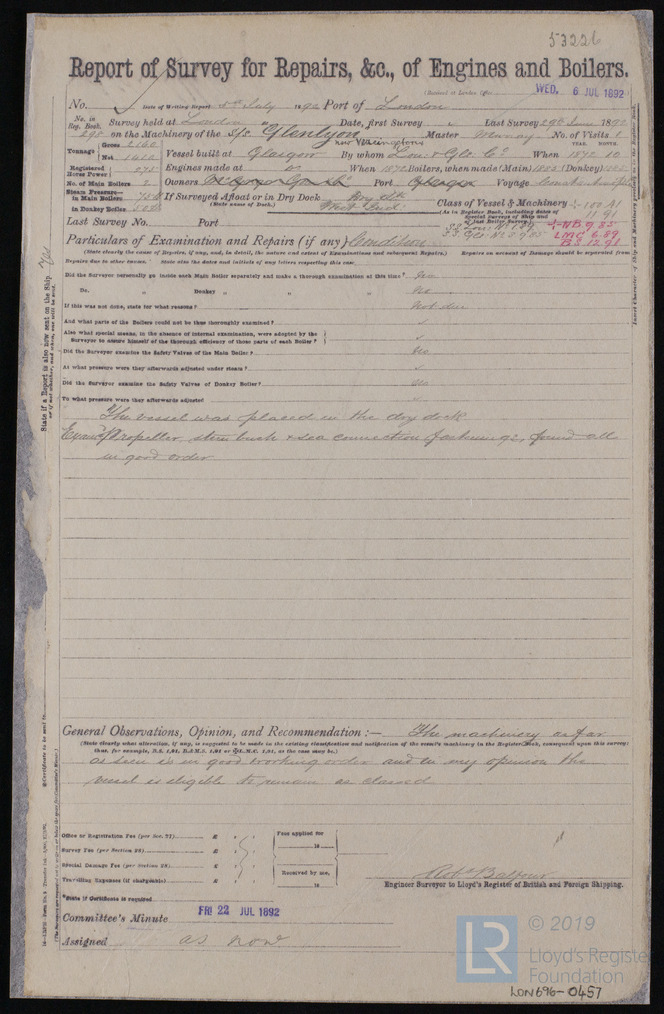 53226
Report of Survey for Repairs, &c., of Engines and Boilers.
(Received at London Office WED. 6 JUL 1892
No. Date of Writing Report 5th July 1892 Port of London
No. in Reg. Book. Survey held at London Date, first Survey " Last Survey 29th June 1892
295 on the Machinery of the S/S Glenlyon Master Murray No. of Visits 1
Tonnage Gross 2160
Net 1410
Vessel built at Glasgow By whom Lon. & Gls. Co When 1872 10
YEAR. MONTH.
Registered Horse Power 275 Engines made at do When 1872 Boilers, when made (Main) 1885 (Donkey) 1885
No. of Main Boilers 2 Owners McGregor Gow & Co Port Glasgow Voyage
Steam Pressure— in Main Boilers 75 lb If Surveyed Afloat or in Dry Dock Dry Dk
in Donkey Boiler 50 lb (State name of Dock.) West India
Class of Vessel & Machinery 100 A1
(As in Register Book, including dates of Special Surveys of Ship and Last Boiler Survey.) 11 91
Last Survey No. Port
NB 9.85
LMC 6.89
BS 12.91
Particulars of Examination and Repairs (if any) Condition
(State clearly the cause of Repairs, if any, and, in detail, the nature and extent of Examinations and subsequent Repairs.) Repairs on account of Damage should be separated from
Repairs due to other causes. State also the dates and initials of any letters respecting this case
Did the Surveyor personally go inside each Main Boiler separately and make a thorough examination at this time? No
Do. Donkey " " " No
If this was not done, state for what reasons? Not due
And what parts of the Boilers could not be thus thoroughly examined?
Also what special means, in the absence of internal examination, were adopted by the
Surveyor to assure himself of the thorough efficiency of those parts of each Boiler?
Did the Surveyor examine the Safety Valves of the Main Boiler? No
At what pressure were they afterwards adjusted under steam?
Did the Surveyor examine the Safety Valves of Donkey Boiler? No
To what pressure were they afterwards adjusted
The vessel was placed in the dry dock
Examd Propeller, stern bush & sea connection fastenings, found all
in good order
General Observations, Opinion, and Recommendation :— The machinery as far
(State clearly what alteration, if any, is suggested to be made in the existing classification and notification of the vessel's machinery in the Register Book, consequent upon this survey;
thus, for example, B.S. 1,91, B.&M.S. 1,91 or L.M.C. 1,91, as the case may be.)
as seen is in good working order and in my opinion the
vessel is eligible to remain as classed
Office or Registration Fee (per Sec. 27) £ : :
Survey Fee (per Section 28) £ : :
Special Damage Fee (per Section 28) £ : :
Travelling Expenses (if chargeable) £ : :
Fees applied for
18
Received by me,
18
Robt Balfour
Engineer Surveyor to Lloyd's Register of British and Foreign Shipping.
*State if Certificate is required
Committee's Minute FRI 22 JUL 1892
Assigned as now
State if a Report is also now sent on the Ship Yes
© 2019
LR
Lloyd's Register
Foundation
LON696-0457